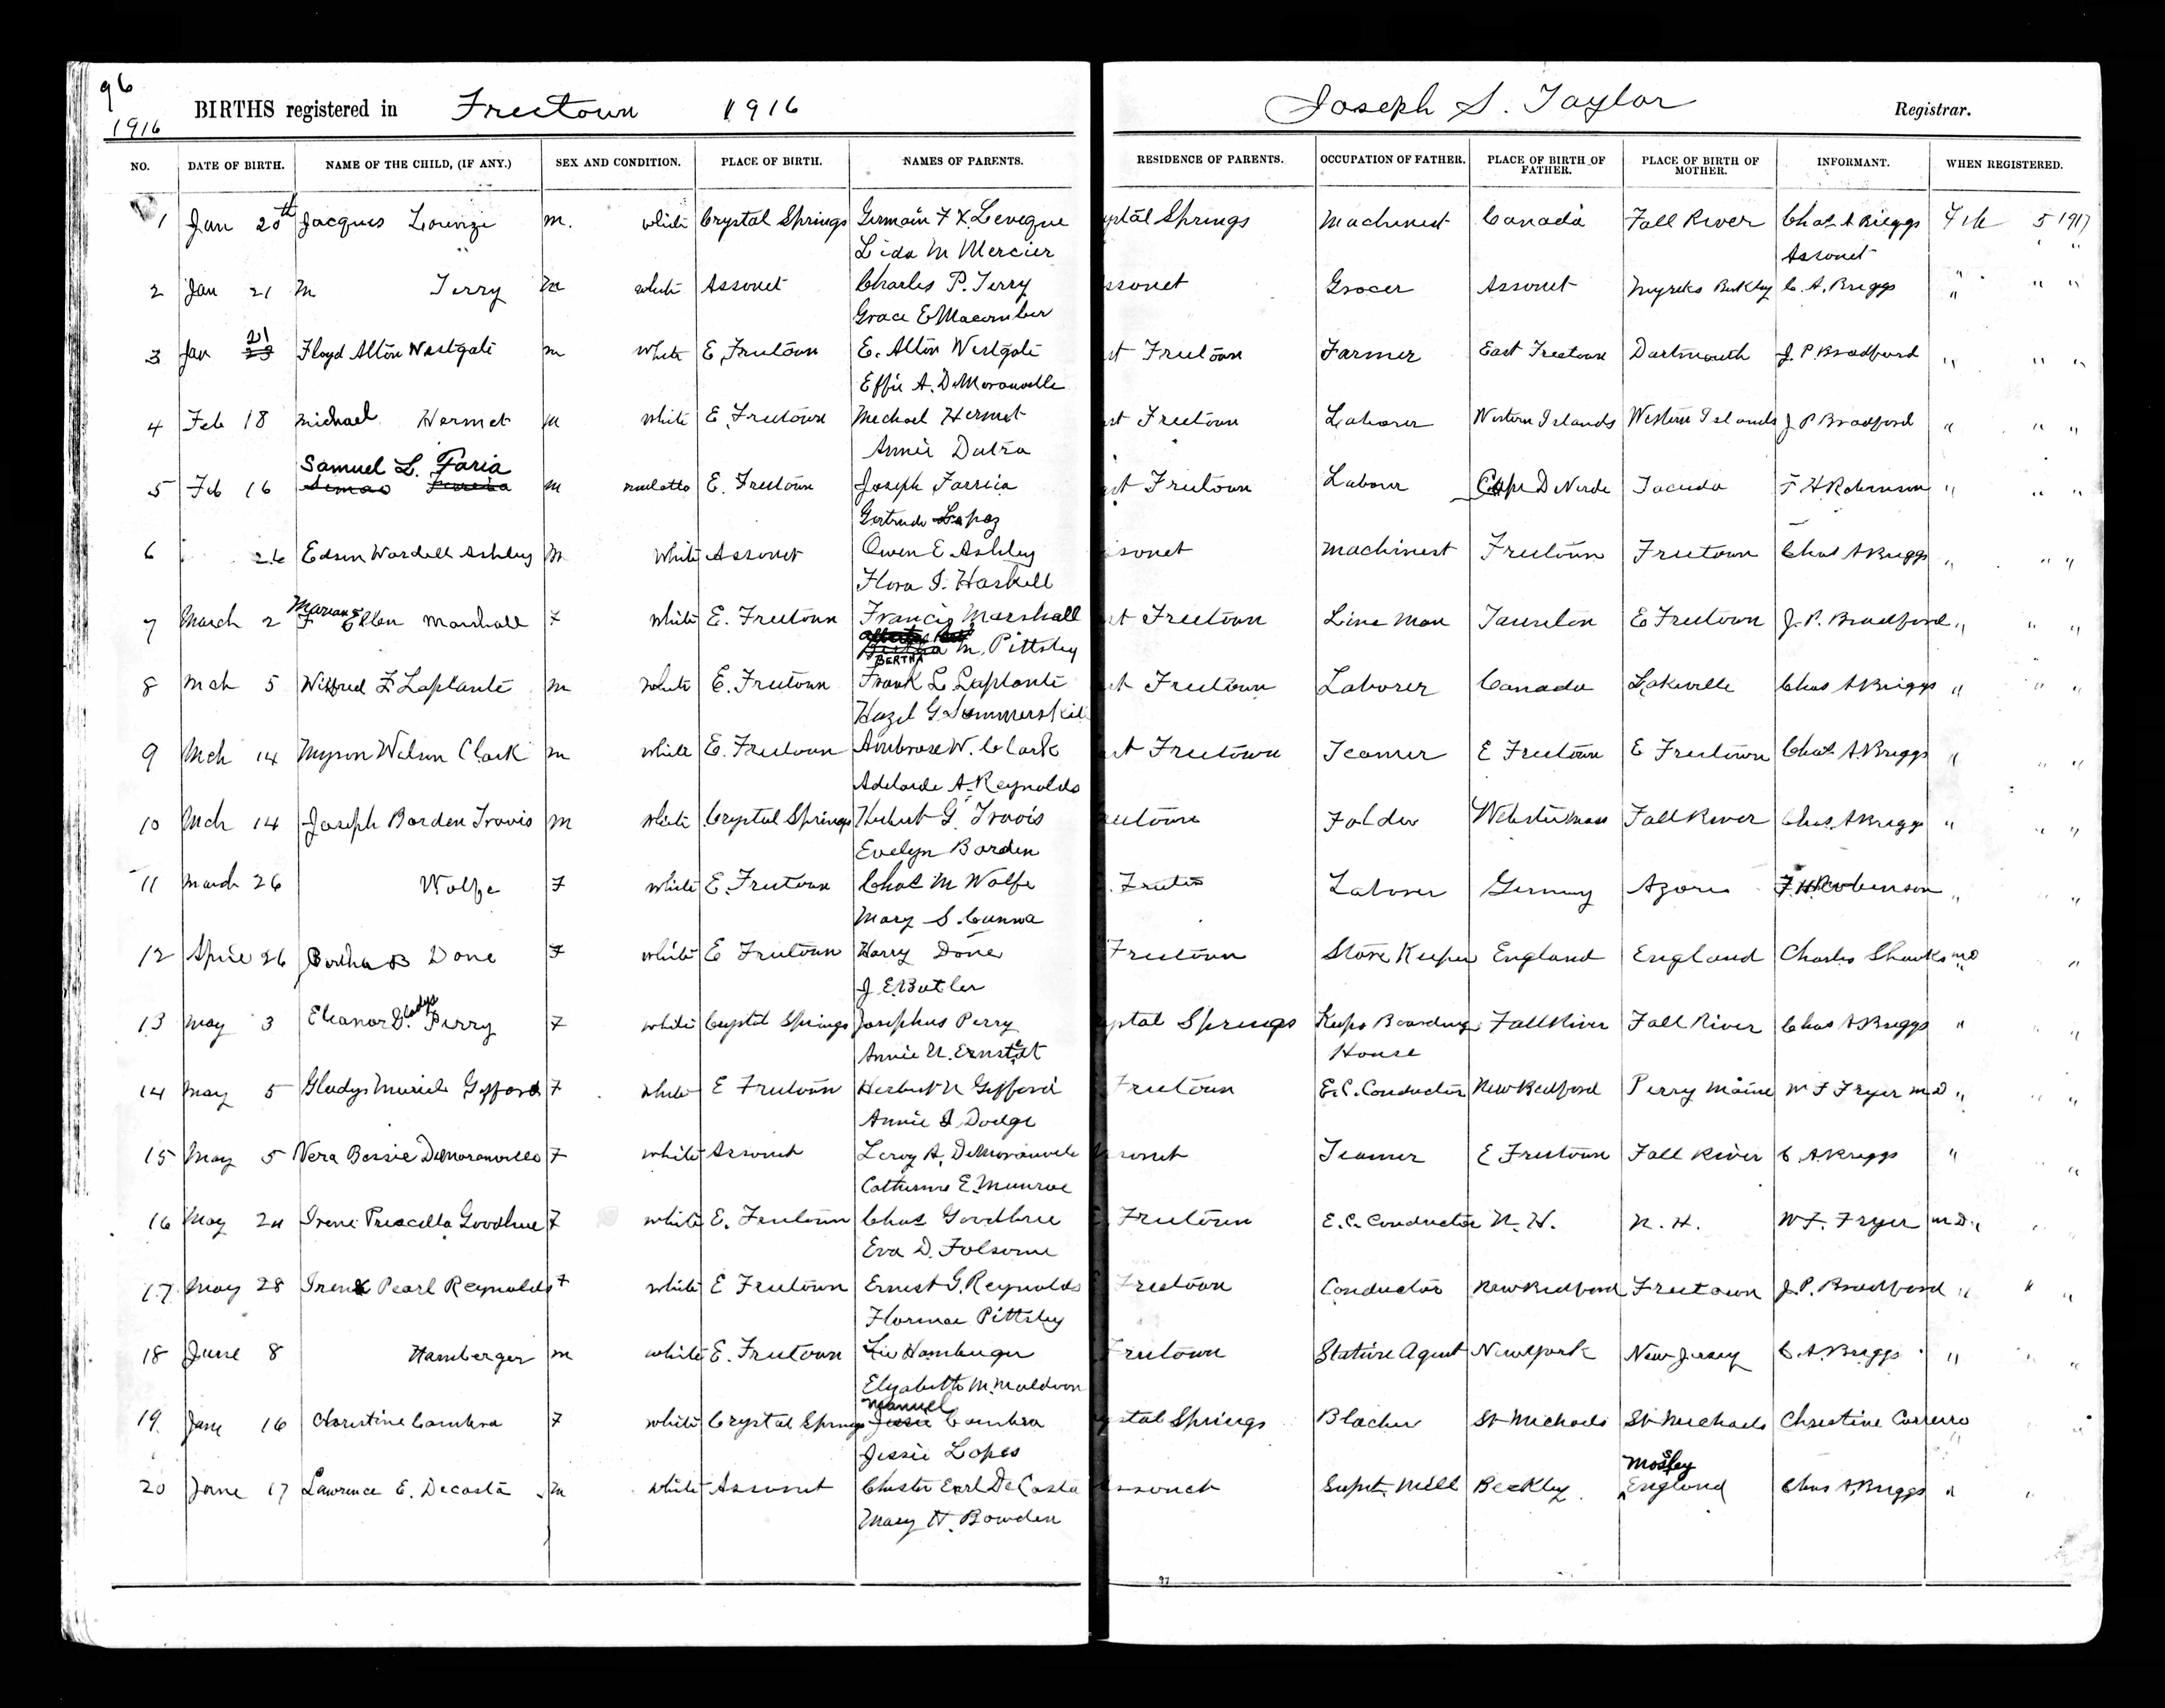 96
BIRTHS registered in Freetown 1916 Joseph S. Taylor Registrar.
1916
NO. DATE OF BIRTH. NAME OF THE CHILD, (IF ANY.) SEX AND CONDITION. PLACE OF BIRTH. NAMES OF PARENTS. RESIDENCE OF PARENTS. OCCUPATION OF FATHER. PLACE OF BIRTH OF FATHER. PLACE OF BIRTH OF MOTHER. INFORMANT. WHEN REGISTERED.
1 Jan 20th Jacques m. white Crystal Springs Germain F X. Leveque ystal Springs Machinest Canada Fall River Chas A Briggs Feb 5 1917
" Lida M Mercier Assonet " "
2 Jan 21 M Terry m white Assonet Charles P. Terry ssonet Grocer Assonet Myricks Berkley C. A. Briggs " " "
Grace E Macomber
3 Jan 21 23 Floyd Alton Westgate m White E. Freetown E. Alton Westgate st Freetown Farmer East Freetown Dartmouth J. P. Bradford " " "
Effie A. DeMoranville
4 Feb 18 Michael Hermet M White E. Freetown Mechael Hermet st Freetown Laborer Western Islands Western Islands J P Bradford " " "
Annie Dutra
Samuel L. Faria
5 Feb 16 Simao Ferreira M mulatto E. Freetown Joseph Farria st Freetown Labour Cape D Verde F H Robinson " " "
Gertrude Lopez
6 26 Edson Wardell Ashley M White Assonet Owen E. Ashley sonet Machinest Freetown Freetown Chas A Briggs " " "
Flora I. Haskell
7 March 2 F Marian Ellen Marshall F White E. Freetown Francis Marshall st Freetown Line Man Taunton E Freetown J. P. Bradford " " "
M. Pittsley
BERTHA
8 Mch 5 Wilfred F Laplante m White E. Freetown Frank L Laplante st Freetown Laborer Canada Lakeville Chas A Briggs " " "
Hazel G Summerskil
9 Mch 14 Myron Wilson Clark m white E. Freetown Ambrose W. Clark st Freetown Teamer E Freetown E Freetown Chas A. Briggs " " "
Adelaide A. Reynolds
10 Mch 14 Joseph Borden Travis m white Crystal Springs Hubert G. Travis eetown Folder Webster Mass Fall River Chas. A Briggs " " "
Evelyn Borden
11 March 26 Wolfe F white E. Freetown Chas M Wolfe Laborer Germany Azores F. H. Robinson " " "
Mary S. Cunna
12 April 26 Bertha B Done F white E Freetown Harry Done Freetown Store Keeper England England Charles Shanks MD " "
J. E. Butler
13 May 3 Eleanor Gladys Perry F white Crystal Springs Josephus Perry ystal Springs Keeps Boarding Fall River Fall River Chas A Briggs " "
Annie N. Ernstedt House
14 May 5 Gladys Muriel Gifford F white E Freetown Herbert N Gifford Freetown E.C. Conductor New Bedford Perry Maine W F Fryer M D " " "
Annie I Dodge
15 May 5 Vera Bessie DeMoranville F white Assonet Leroy A. DeMoranvile sonet Teamer E Freetown Fall River C. A Briggs " "
Catherine E. Munroe
16 May 24 Irene Priscilla Goodhue F white E. Freetown Chas Goodhue Freetown E. C. Conductor N. H. N. H. W F. Fryer M D. " "
Eva D. Folsome
17 May 28 Irene Pearl Reynolds F white E Freetown Ernest G. Reynolds Freetown Conductor New Bedford Freetown J. P. Bradford " " "
Florence Pittsley
18 June 8 Hamberger m white E. Freetown Hamburger reetown Station Agent New York New Jersey C. A. Briggs " " "
Elizabeth M. Muldoon
Manuel
19 June 16 Christine Cambra F white Crystal Springs Jessie Cambra ystal Springs Blacher St Michaels St Michaels Christine Correiro "
Jessie Lopes
Mosley
20 June 17 Lawrence E. Decosta m white Assonet Chester Earl DeCosta ssonet Supt. Mill Berkley England Chas A. Briggs " "
Mary H. Bowden
97